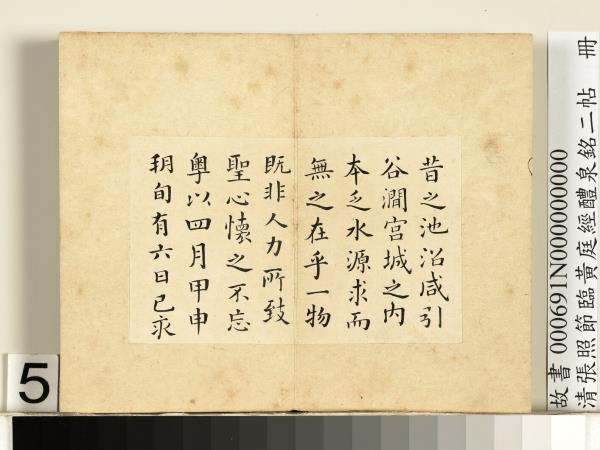 昔之池沼咸引
谷澗宮城之內
本乏水源求而
無之在乎一物
既非人力所致
聖心懷之不忘
粵以四月甲申
朔旬有六日己亥
5
故書 000691N000000000
清張照節臨黃庭經醴泉銘二帖 冊